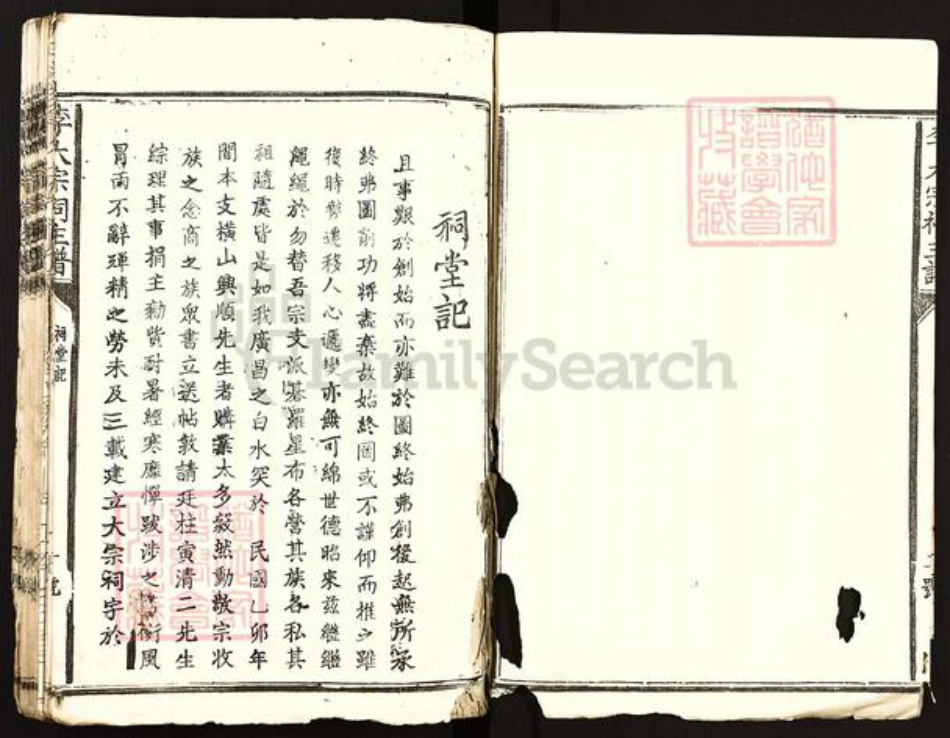 祠堂記
且事艱於創始而亦難於圖終始弗創後起無所承
終弗圖前功將盡棄故始終罔或不謹仰而推之雖
後時勢遷移人心遞變亦無可綿世德昭來茲繼繼
繩繩於勿替吾宗支派碁羅星布各營其族各私其
祖隨處皆是如我廣昌之白水突於 民國乙卯年
間本支橫山興順先生者購業太多毅然動敬宗收
族之念商之族眾書立送帖敦請廷柱寅清二先生
綜理其事捐主勸貲耐暑經寒靡憚跋涉之 衝風
冒雨不辭殫精之勞未及三載建立大宗祠宇於
李大宗祠主譜
祠堂記
號
李大宗祠主譜
號
FamilySearch
收藏
譜學會